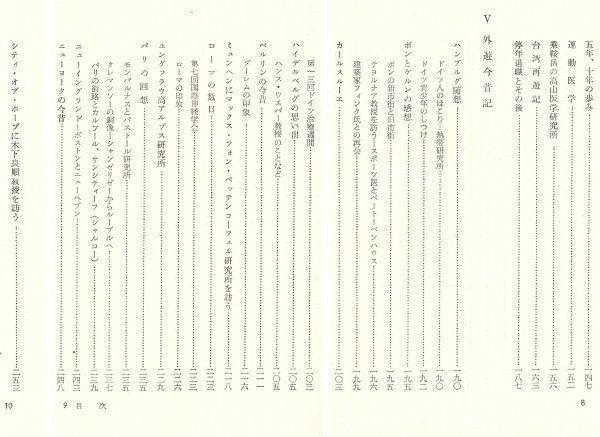 五年、十年の歩み……一四七
運動医学……一五二
乗鞍岳の高山医学研究所……一五六
台湾再遊記……一六三
停年退職とその後……一八七
Ⅴ 外遊今昔記
ハンブルグ随想……一九〇
ドイツ人のほこり―熱帯研究所……一九〇
ドイツ青少年のしつけ……一九二
ボンとケルンの感想……一九五
ボンの新市街と旧市街……一九五
チョルナア教授を訪う―スポーツ医とベートーベンハウス……一九六
建築家フィンク氏との再会……一九九
カールスルーエ……二〇三
第一三回ドイツ治療週間……二〇三
ハイデルベルグの思い出……二〇五
ハンス・ウエバー教授のことなど……二〇五
ベルリンの今昔……二一一
ダーレムの印象……二一六
ミュンヘンにマックス・フォン・ペッテンコーフェル研究所を訪う……二一八
ローマの数日……二二三
第七回国際神経学会……二二三
ローマの印象……二二六
ユングフラウ高アルプス研究所……二二九
パリの回想……二三五
モンパルナスとパストール研究所……二三五
クレマンソーの銅像―シャンゼリゼーからルーブルへ……二三七
パリの街路とカルフール、サンシティーフ(シャルコー)……二三九
ニューイングランド―ボストンとニューヘブン……二四三
ニューヨークの今昔……二四八
シティ・オブ・ホープに木下良順教授を訪う……二五三
8
9 目次
10